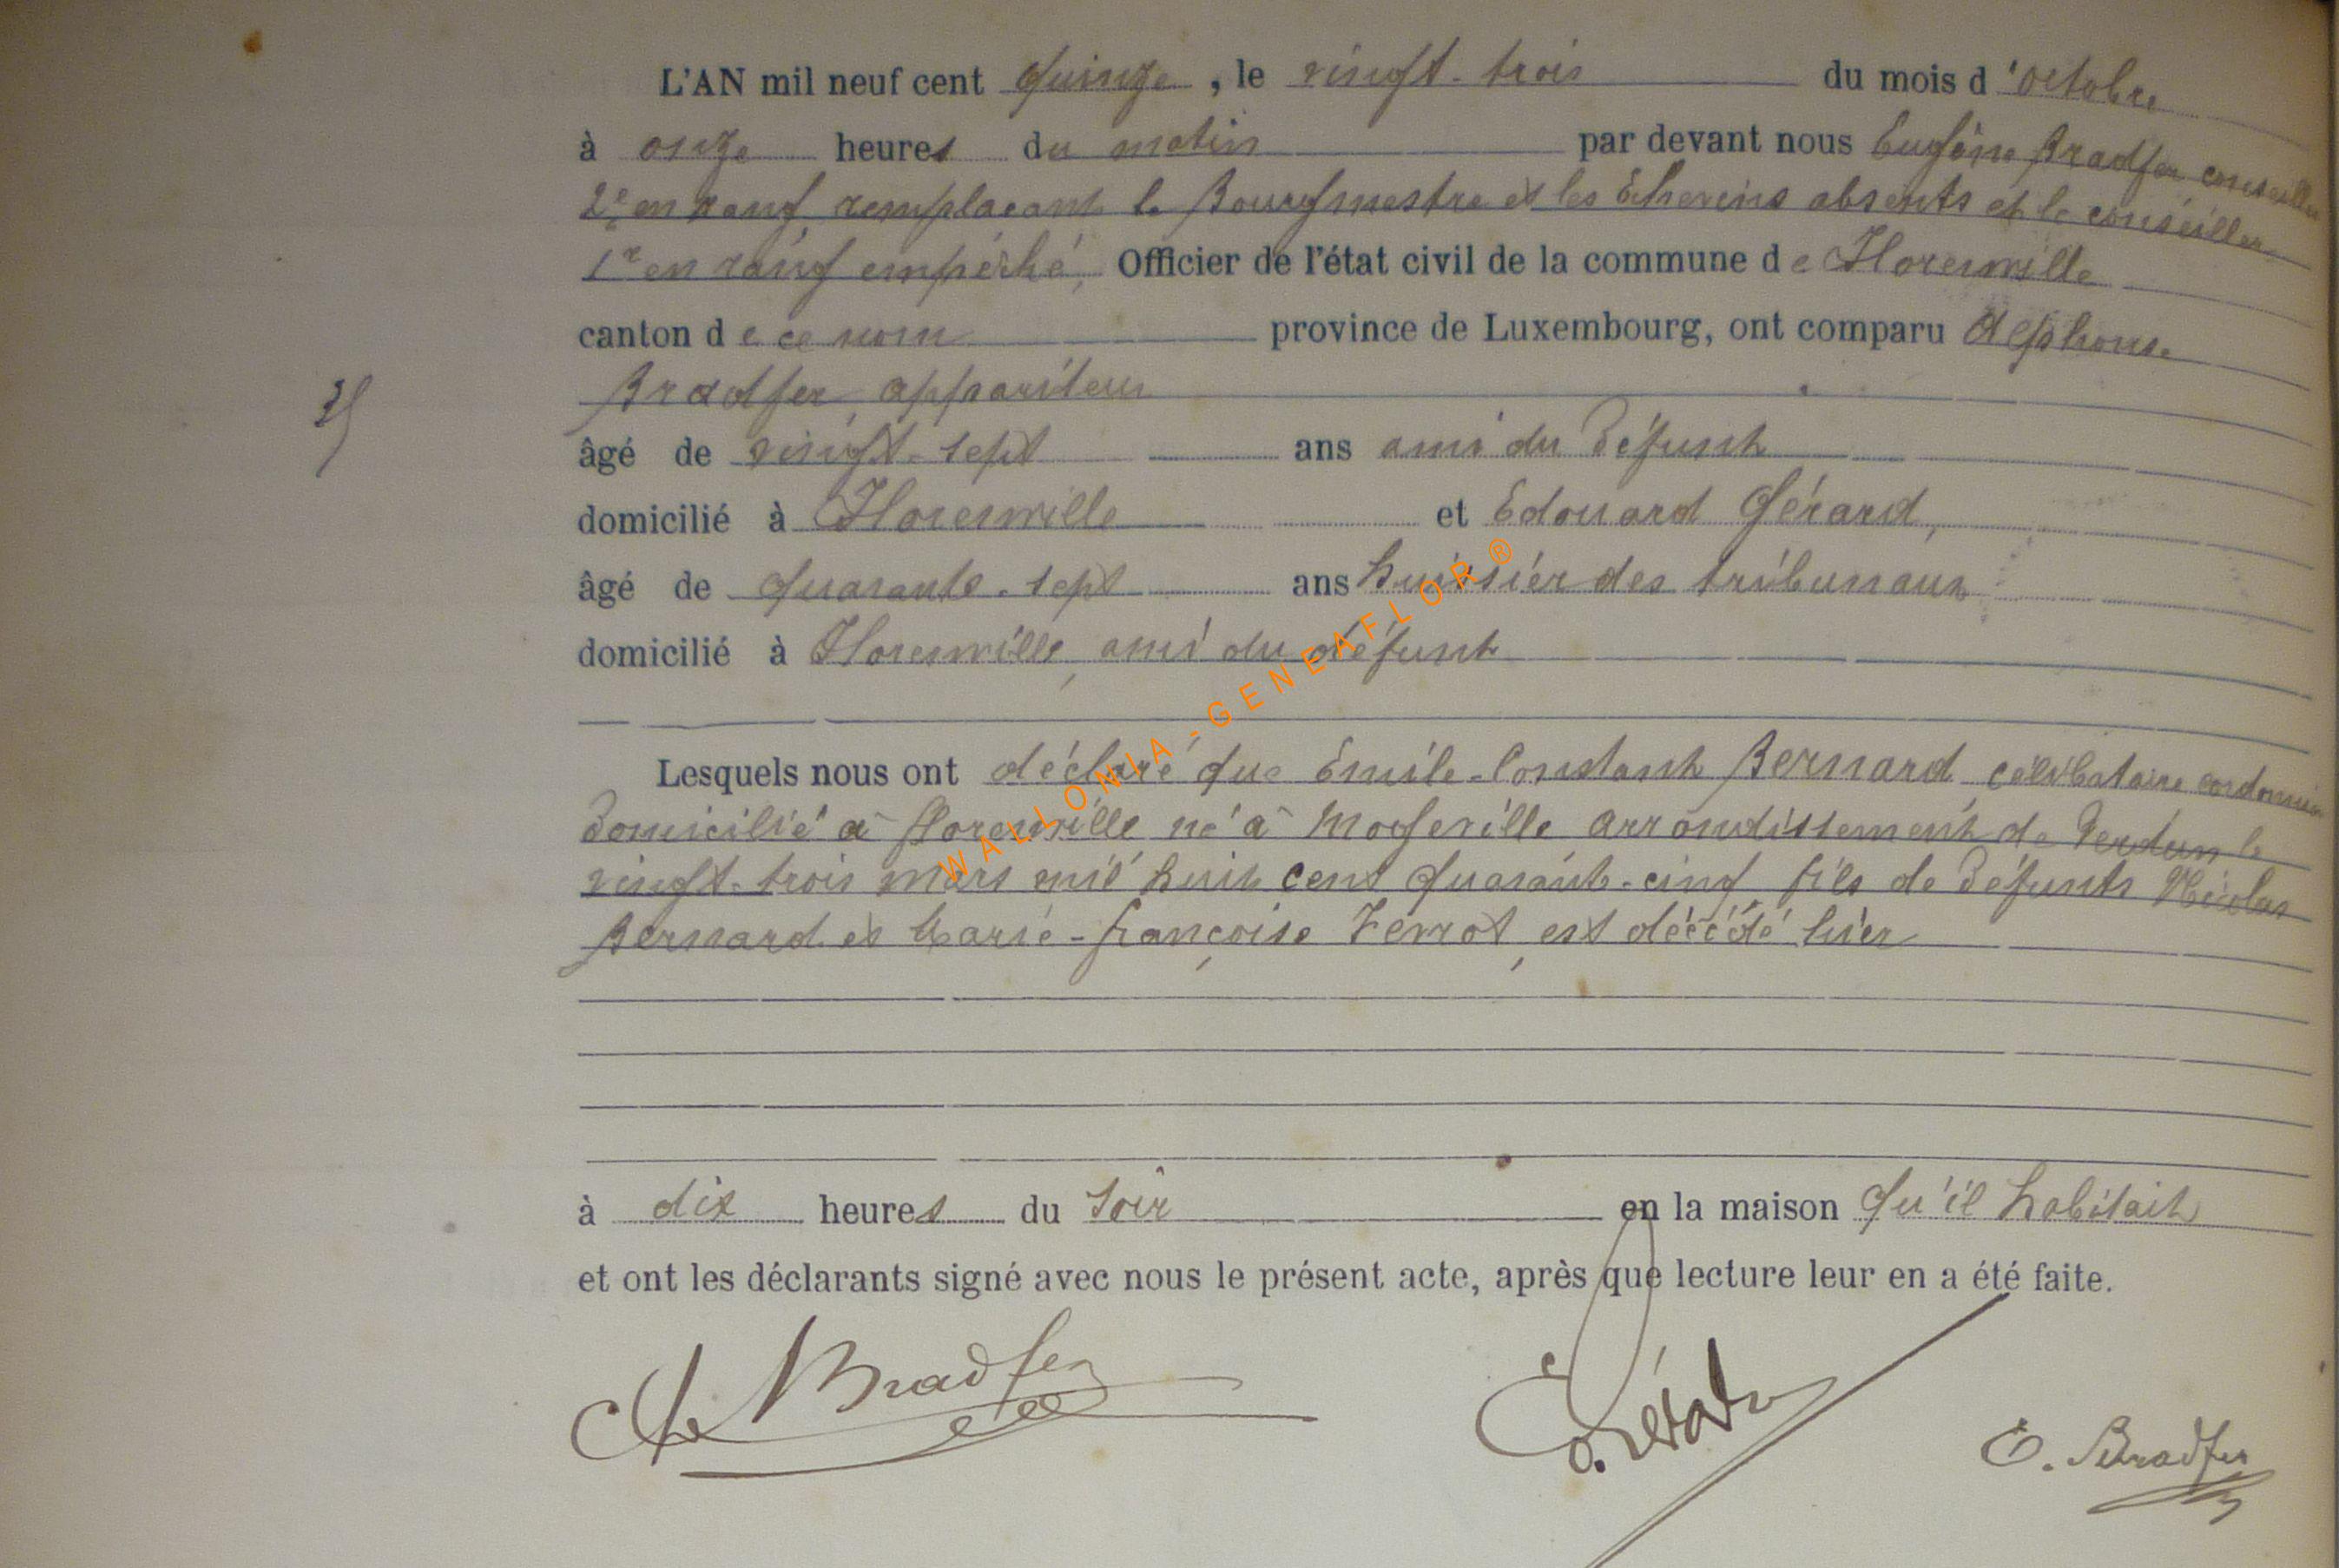 L'AN mil neuf cent quinze, le vingt-trois du mois d'octobre
à onze heures du matin par devant nous Eugène Bradfer conseiller
2e en rang, remplaçant le Bourgmestre et les Echevins absents et le conseiller
1r en rang empêché, Officier de l'état civil de la commune de Florenville
canton de ce nom province de Luxembourg, ont comparu Alphonse
Bradfer, appariteur
âgé de vingt-sept ans ami du défunt
domicilié à Florenville et Edouard Gérard,
âgé de quarante-sept ans huissier des tribunaux
domicilié à Florenville, ami du défunt
WALLONIA-GENEAFLOR®
Lesquels nous ont déclaré que Emile-Constant Bernard célibataire cordonnier
domicilié à Florenville né à Mogeville arrondissement de Verdun le
vingt-trois mars mil huit cent quarante-cinq fils de défunts Nicolas
Bernard et Marie-françoise, est décédé hier
à dix heures du soir en la maison qu'il habitait
et ont les déclarants signé avec nous le présent acte, après que lecture leur en a été faite.
A Bradfer E. Gérard E. Bradfer